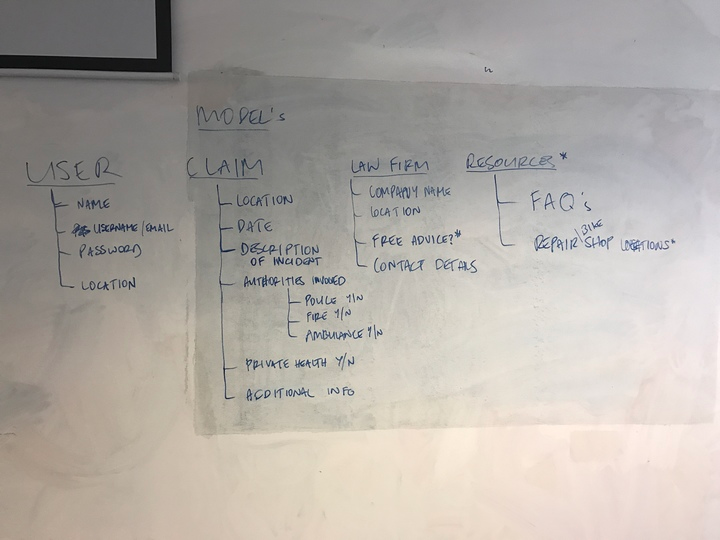 MODEL's
USER
NAME
USERNAME/EMAIL
PASSWORD
LOCATION
CLAIM
LOCATION
DATE
DESCRIPTION
OF INCIDENT
AUTHORITIES INVOLVED
POLICE Y/N
FIRE Y/N
AMBULANCE Y/N
PRIVATE HEALTH Y/N
ADDITIONAL INFO
LAW FIRM
COMPANY NAME
LOCATION
FREE ADVICE?*
CONTACT DETAILS
RESOURCES*
FAQ's
REPAIR BIKE SHOP LOCATIONS*